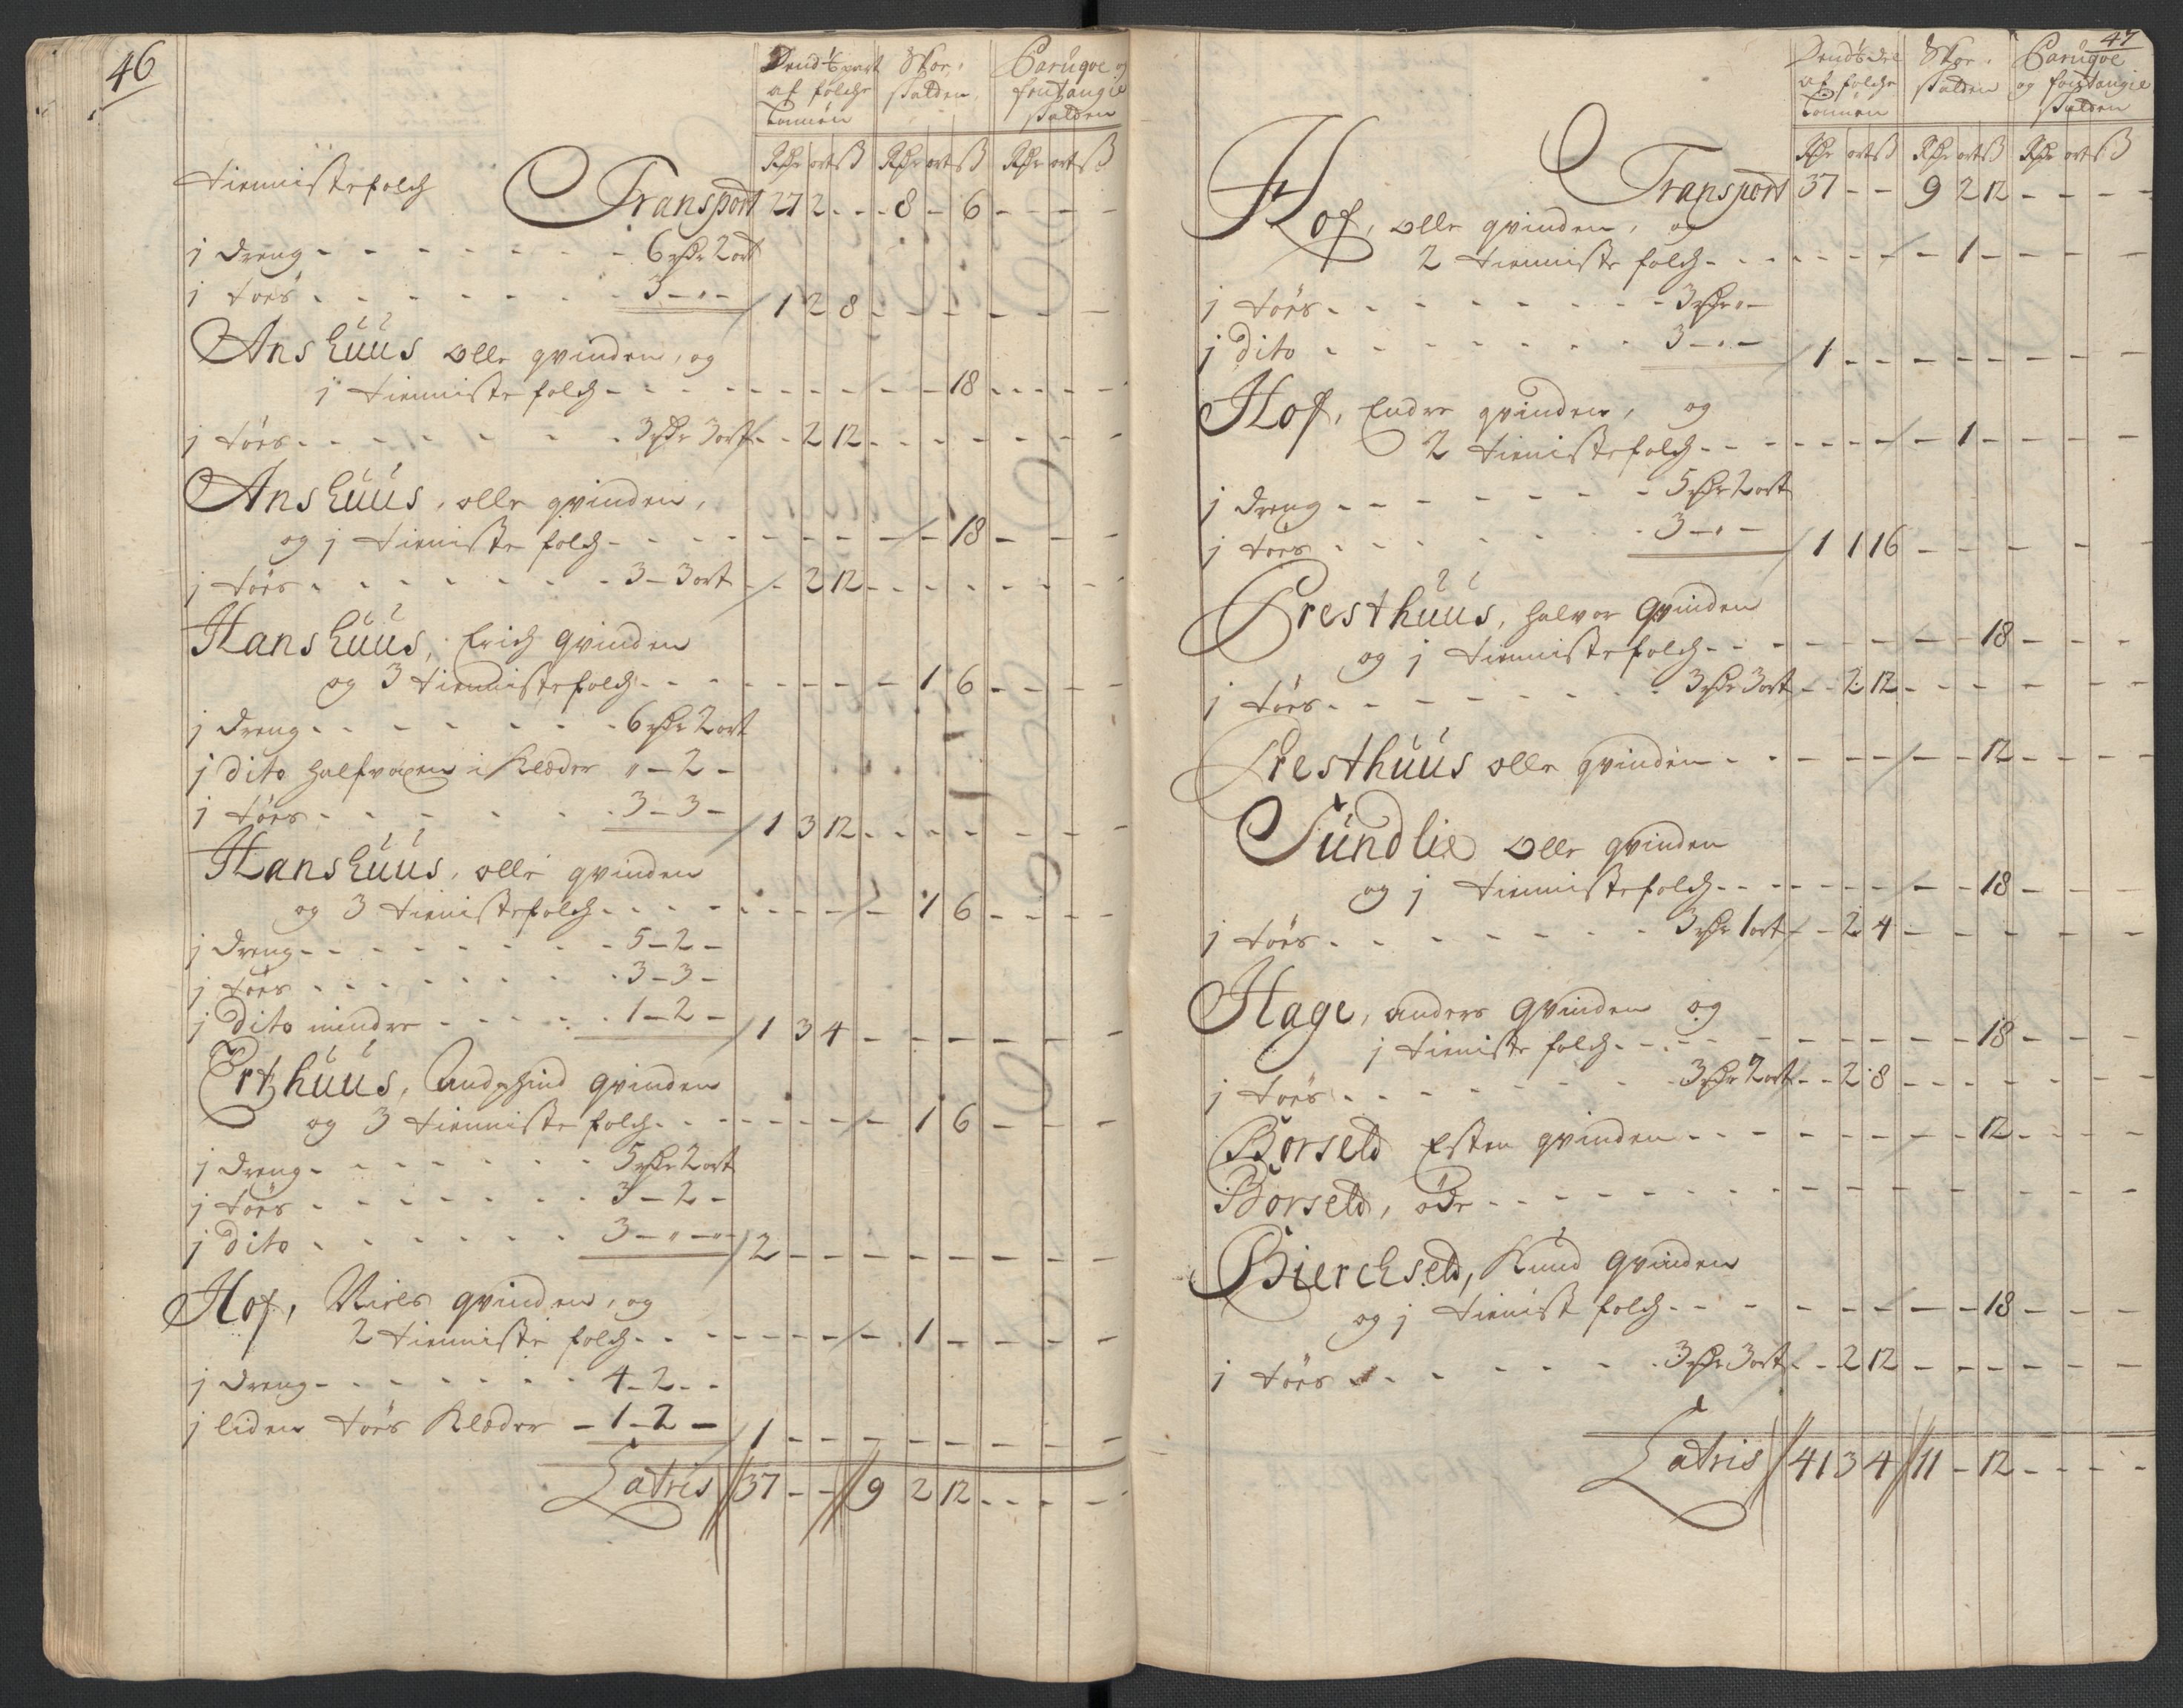 46
Dend 1/6 part af folche Lonnen | Skoe, skatten, | Parugve og fontangie skatten
Rdr ort ß | Rdr ort ß | Rdr ort ß
tiennistefolch Transport 27 2 - - 8 - 6 - - -
j dreng - - - - - - 6 Rdr 2 ort
j töes - - - - - - 3 - " - / 1 2 8 - - - - - -
Anshuus olle qvinden, og
j tienniste folch - - - - - - - - - 18 - - -
j töes - - - - - - 3 Rdr 3 ort / - 2 12 - - - - - -
Anshuus, olle qvinden,
og j tieniste folch - - - - - - - / - 18 - - -
j töes - - - - - - 3 - 3 ort / - 2 12 - - - - - -
Hanshuus, Erich qvinden
og 3 tiennistefolch - - - - - - - 1 6 - - -
j dreng - - - - - - 6 Rdr 2 ort
j dito halfvoxen i Klæder " - 2 -
j töes - - - - - - 3 - 3 - / 1 3 12 - - - - - -
Hanshuus, olle qvinden
og 3 tienistefolch - - - - - - - / - 1 6 - - -
j dreng - - - - - - 5 - 2 -
j töes - - - - - - 3 - 3 -
j dito mindre - - - - 1 - 2 - / 1 3 4 - - - - - -
Ertzhuus, qvinden
og 3 tienniste folch - - - - - - / - 1 6 - - -
j dreng - - - - - - 5 Rdr 2 ort
j töes - - - - - - 3 - 2 -
j dito - - - - - - 3 - " - " - / 2 - - - - - - - -
Hof, Niels qvinden, og
2 tienniste folch - - - - - - / - 1 - - - -
j dreng - - - - - - 4 - 2 - -
j liden töes Klæder - 1 - 2 - / 1 - - - - - - - -
Latris // 37 - - // 9 2 12 - - - -
47
Dend 1/6 del af folche Lonnen | Skoe, skatten | Parugve og fontangie skatten
Rdr ort ß | Rdr ort ß | Rdr ort ß
Transport 37 - - 9 2 12 - - -
Hof, olle qvinden, og
2 tienniste folch - - - - - - / - 1 - - - -
j töes - - - - - - 3 Rdr " -
j dito - - - - - - 3 - " - / 1 - - - - - - - -
Hof, Endre qvinden, og
2 tienistefolch - - - - - - / - 1 - - - -
j dreng - - - - - - 5 Rdr 2 ort
j töes - - - - - - 3 - " - / 1 1 16 - - - - - -
Presthuus, halvor qvinden
og j tiennistefolch - - - - - - / - - 18 - - -
j töes - - - - - - 3 Rdr 3 ort / - 2 12 - - - - - -
Presthuus olle qvinden - - - - - / - - 12 - - -
Sundlie olle qvinden
og j tiennistefolch - - - - - - / - - 18 - - -
j töes - - - - - - 3 Rdr 1 ort / - 2 4 - - - - - -
Hage, anders qvinden og
j tieniste folch - - - - - - - - - 18 - - -
j töes - - - - - - 3 Rdr 2 ort / - 2 8 - - - - - -
Borseld Esten qvinden - - - - - - / - - 12 - - -
Borseld, öde - - - - - - - - - - - - -
Bierchseld, Knud qvinden
og j tienist folch - - - - - - / - - 18 - - -
j töes - - - - - - 3 Rdr 3 ort / - 2 12 - - - - - -
Latris // 41 3 4 // 11 - 12 - - - -